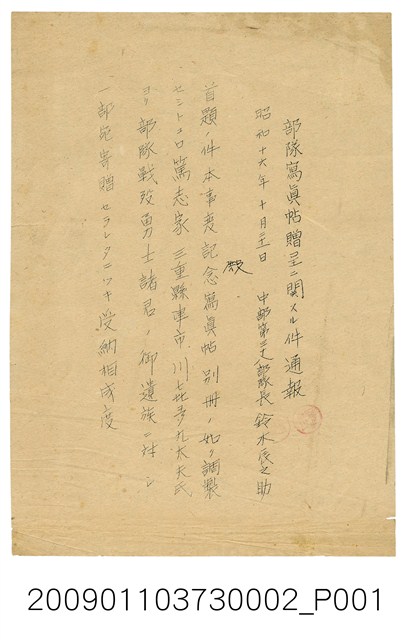 部隊寫眞帖贈呈ニ関スル件通報
昭和十六年十月二十日 中部第三十八部隊長 鈴木辰之助
殿
首題ノ件本事変記念寫眞帖別冊ノ如ク調製
セシトコロ篤志家三重縣津市 川 九太夫氏
ヨリ部隊戦歿勇士諸君ノ御遺族ニ対シ
一部宛寄贈セラレタニツキ受納相成度
200901103730002_P001